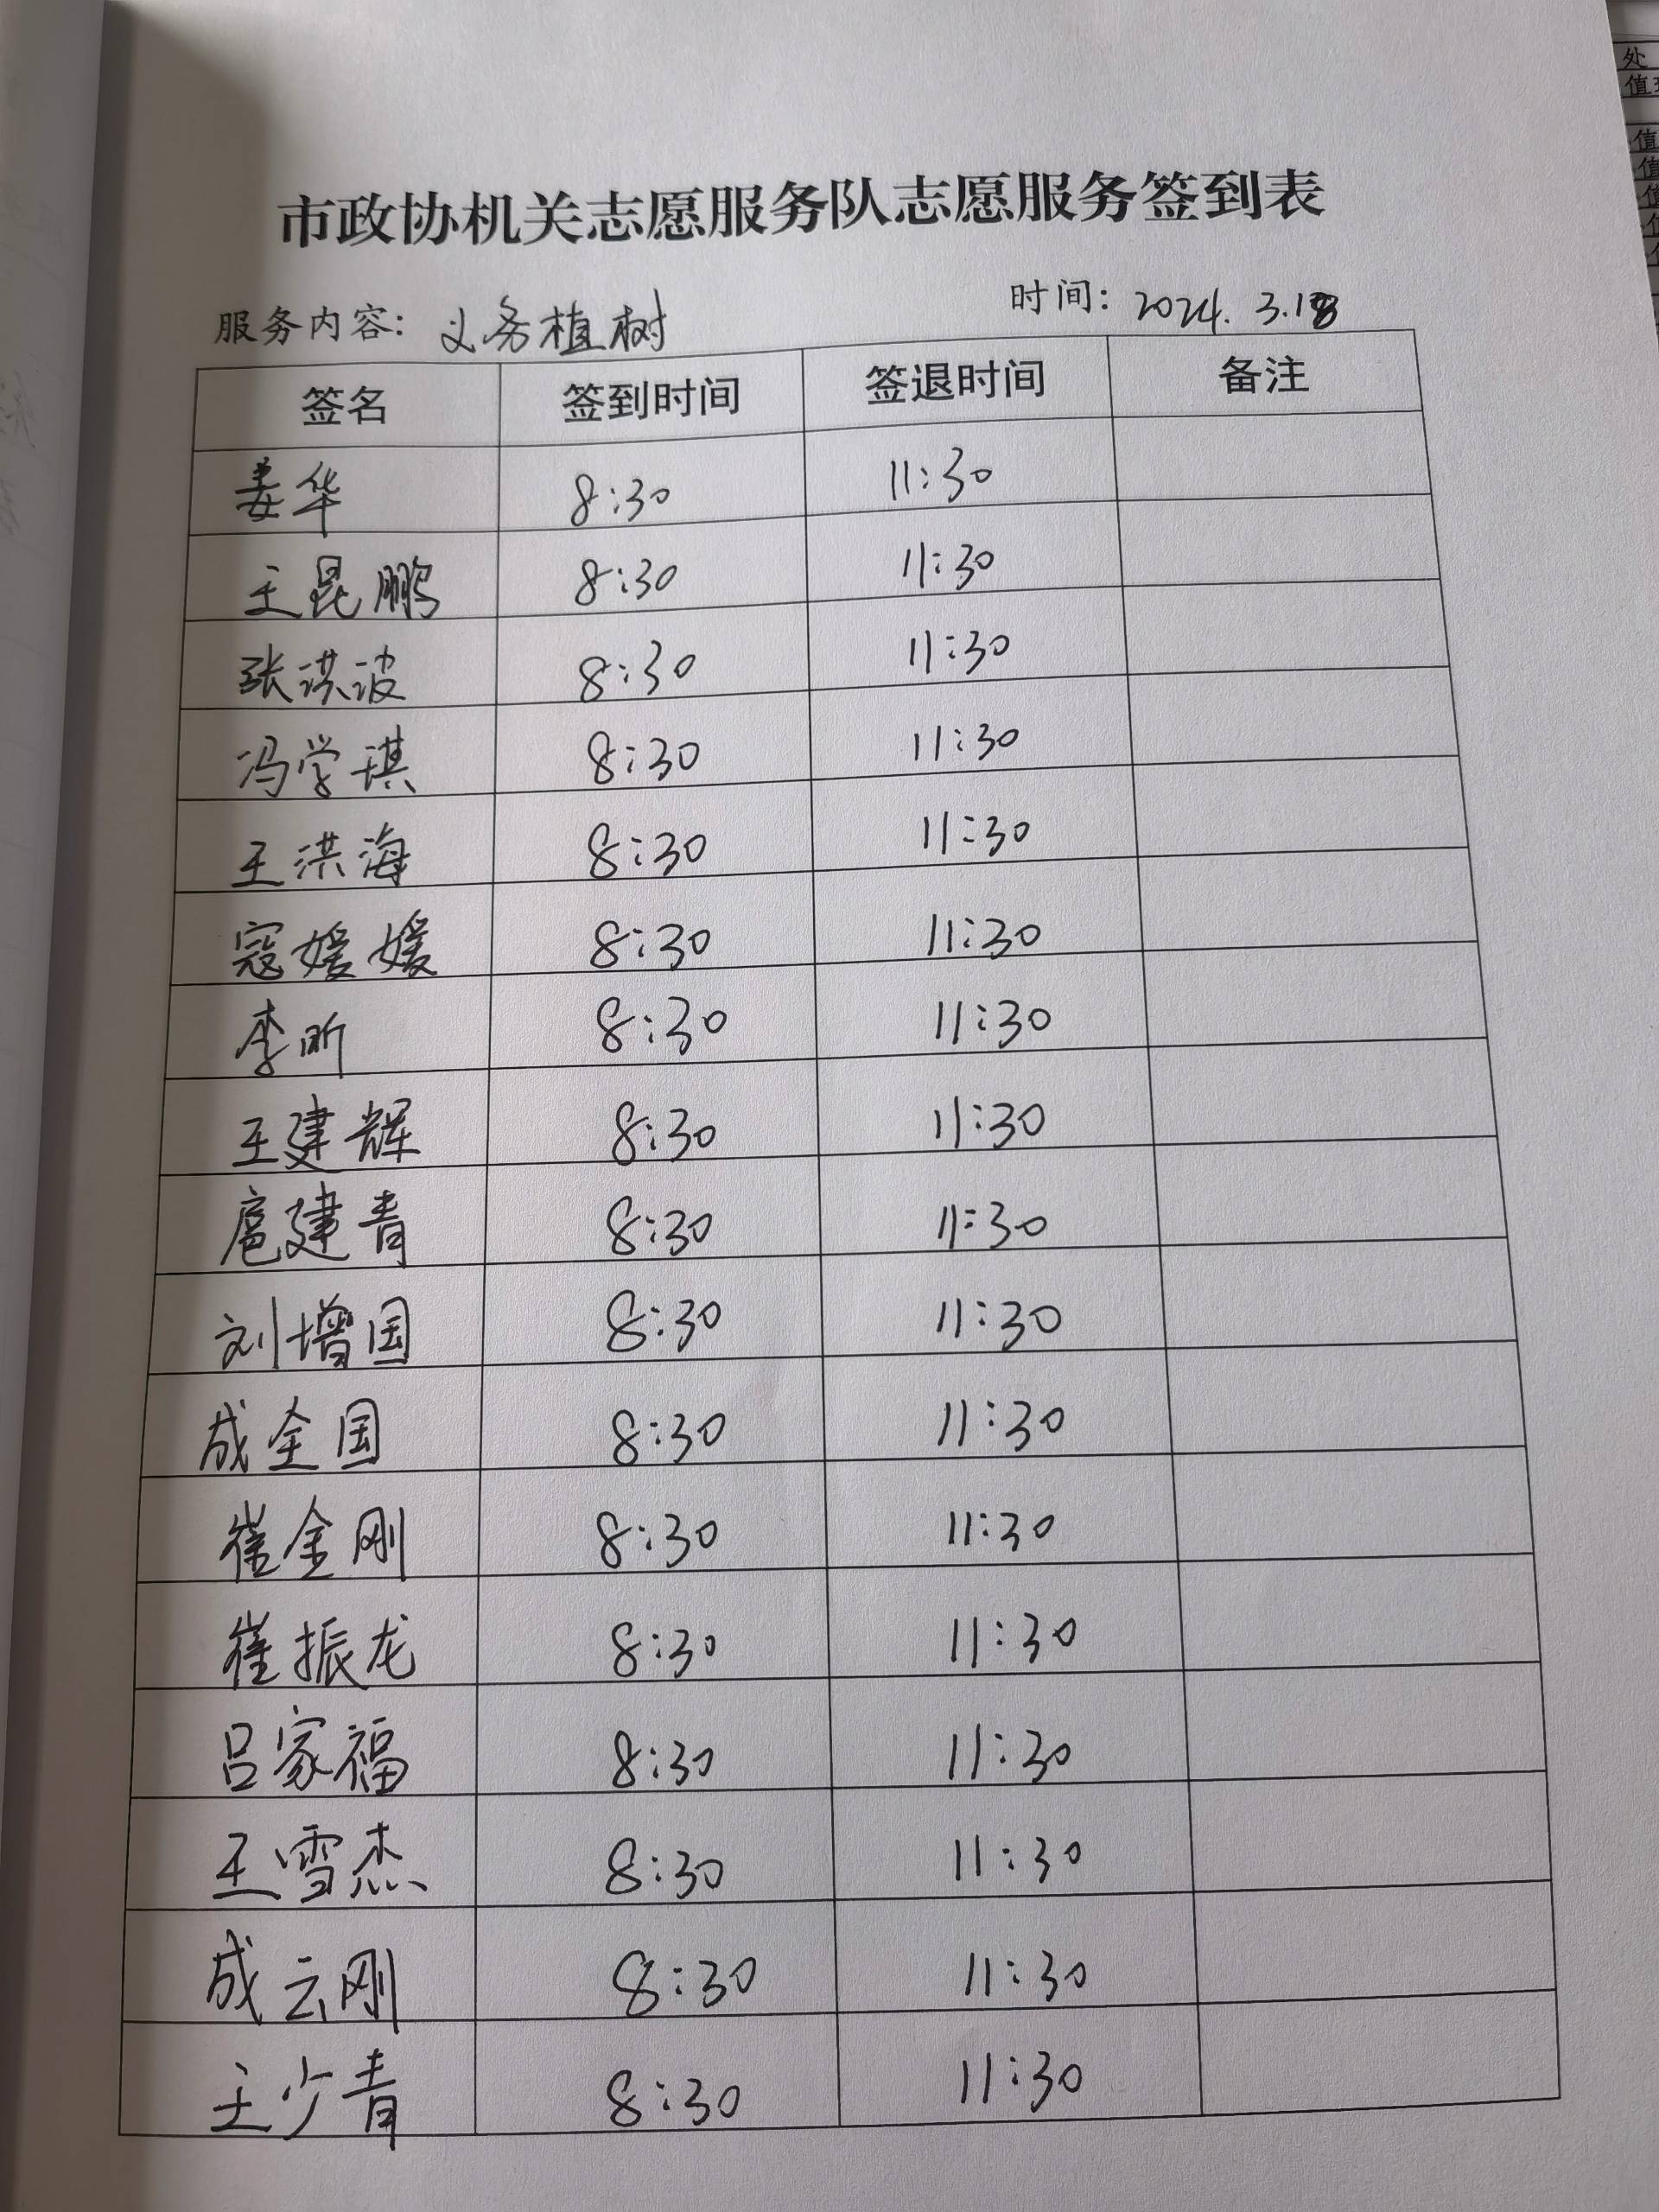 市政协机关志愿服务队志愿服务签到表
服务内容: 义务植树 时间: 2024. 3.18
签名 签到时间 签退时间 备注
姜华 8:30 11:30
王昆鹏 8:30 11:30
张洪波 8:30 11:30
冯学琪 8:30 11:30
王洪海 8:30 11:30
寇媛媛 8:30 11:30
李昕 8:30 11:30
王建辉 8:30 11:30
扈建青 8:30 11:30
刘增国 8:30 11:30
成全国 8:30 11:30
崔金刚 8:30 11:30
崔振龙 8:30 11:30
吕家福 8:30 11:30
王雪杰 8:30 11:30
成云刚 8:30 11:30
王少青 8:30 11:30
处
值
值
值
值